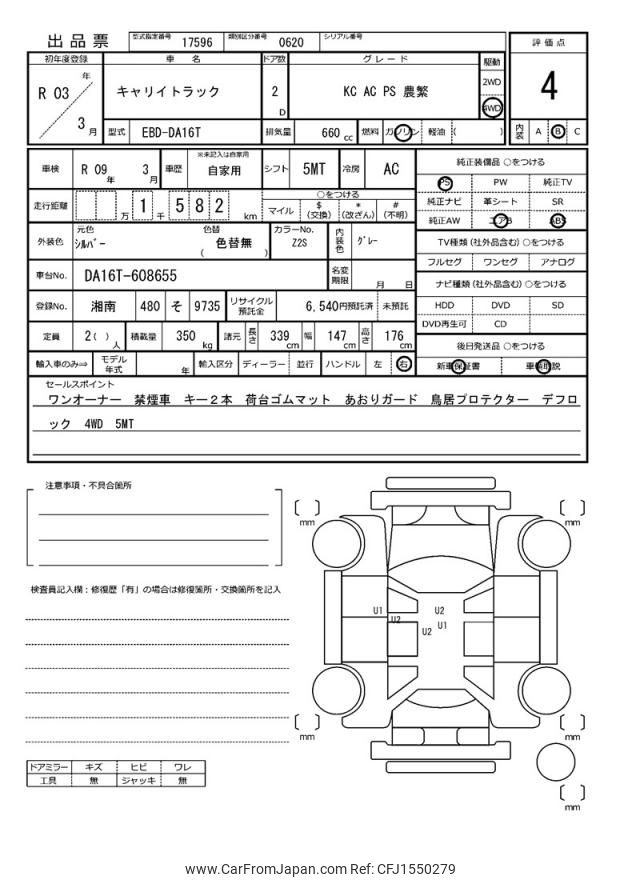 出品票 型式指定番号 17596 類別区分番号 0620 シリアル番号
評価点
4
初年度登録 車名 ドア数 グレード 駆動
R 03 年 3 月
キャリイトラック 2 D KC AC PS 農繁 2WD 4WD
型式 EBD-DA16T 排気量 660 cc 燃料 ガソリン 軽油 ( ) 内装 A B C
車検 R 09 年 3 月 車歴 ※未記入は自家用 自家用 シフト 5MT 冷房 AC
走行距離 万 1 千 5 8 2 km
○をつける
マイル $(交換) *(改ざん) #(不明)
外装色 元色 シルバー 色替 色替無 ( ) カラーNo. Z2S 内装色 グレー
車台No. DA16T-608655 名変期限 月 日
登録No. 湘南 480 そ 9735 リサイクル預託金 6,540円預託済 未預託
定員 2( )人 積載量 350 kg 諸元 長さ 339 cm 幅 147 cm 高さ 176 cm
輸入車のみ⇒ モデル年式 年 輸入区分 ディーラー 並行 ハンドル 左 右
純正装備品 ○をつける
PS PW 純正TV
純正ナビ 革シート SR
純正AW エアB ABS
TV種類(社外品含む)○をつける
フルセグ ワンセグ アナログ
ナビ種類(社外品含む)○をつける
HDD DVD SD
DVD再生可 CD
後日発送品 ○をつける
新車保証書 車輌取説
セールスポイント
ワンオーナー 禁煙車 キー2本 荷台ゴムマット あおりガード 鳥居プロテクター デフロ
ック 4WD 5MT
注意事項・不具合箇所
検査員記入欄:修復歴「有」の場合は修復箇所・交換箇所を記入
ドアミラー キズ ヒビ ワレ
工具 無 ジャッキ 無
mm
mm
U1
U2
U2
U2
U1
mm
mm
mm
www.CarFromJapan.com Ref: CFJ1550279